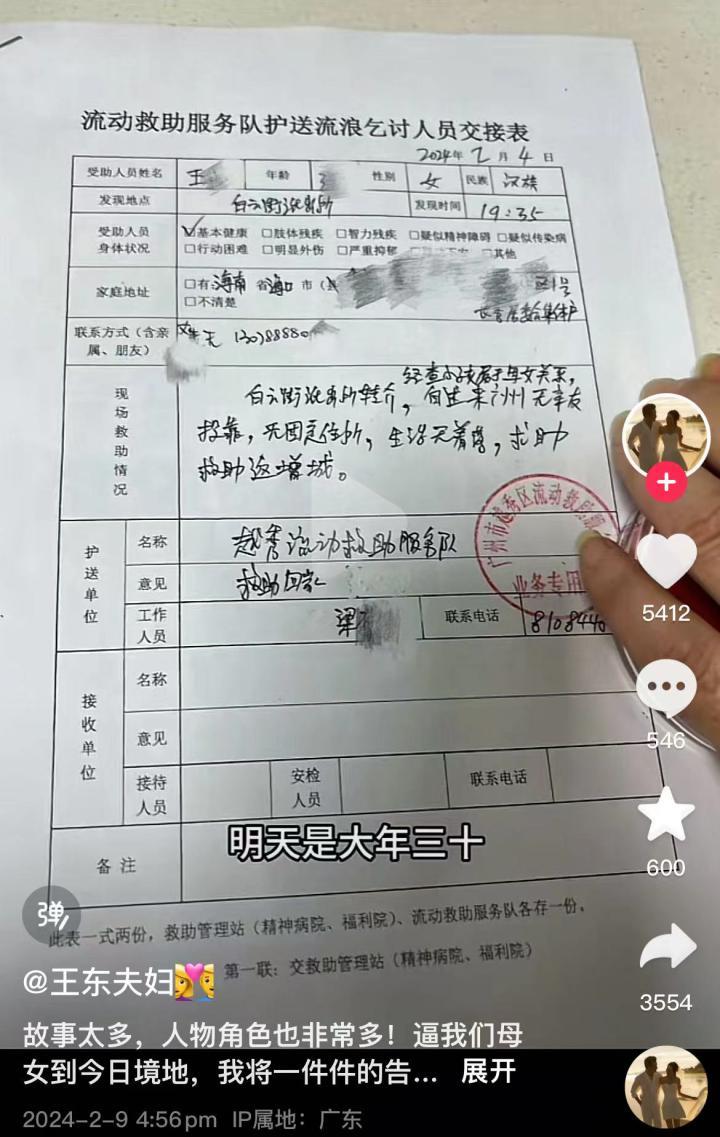 流动救助服务队护送流浪乞讨人员交接表
2024年 2 月 4 日
受助人员姓名 王 年龄 性别 女 民族 汉族
发现地点 白云街派出所 发现时间 19:35
受助人员身体状况 ☑基本健康 □肢体残疾 □智力残疾 □疑似精神障碍 □疑似传染病
□行动困难 □明显外伤 □严重抑郁 □其他
家庭地址 □有 海南 省 海口 市(县 1号
□不清楚
联系方式(含亲属、朋友) 13078888
现场救助情况 经查小孩属于母女关系,
白云街派出所转介,自述来广州无亲友
投靠,无固定住所,生活无着落,求助
救助返增城。
护送单位 名称 越秀流动救助服务队
意见 救助回家
工作人员 梁 联系电话 810844
广州市越秀区流动救助
业务专用
接收单位 名称
意见
接待人员 安检人员 联系电话
备注
明天是大年三十
此表一式两份,救助管理站(精神病院、福利院)、流动救助服务队各存一份。
第一联:交救助管理站(精神病院、福利院)
弹
5412
546
600
3554
@王东夫妇
故事太多,人物角色也非常多!逼我们母
女到今日境地,我将一件件的告... 展开
2024-2-9 4:56pm IP属地:广东